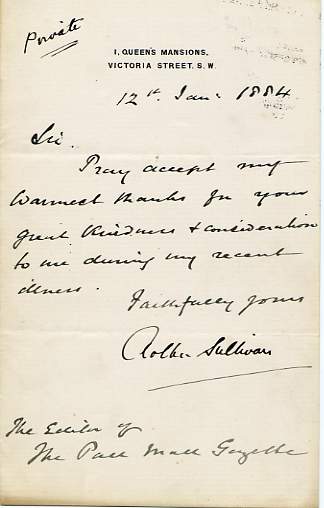 Private
1, QUEEN'S MANSIONS,
VICTORIA STREET. S.W.
12th Jan: 1884
Sir.
Pray accept my
warmest thanks for your
great kindness & consideration
to me during my recent
illness.
Faithfully yours
Arthur Sullivan
The Editor of
The Pall Mall Gazette